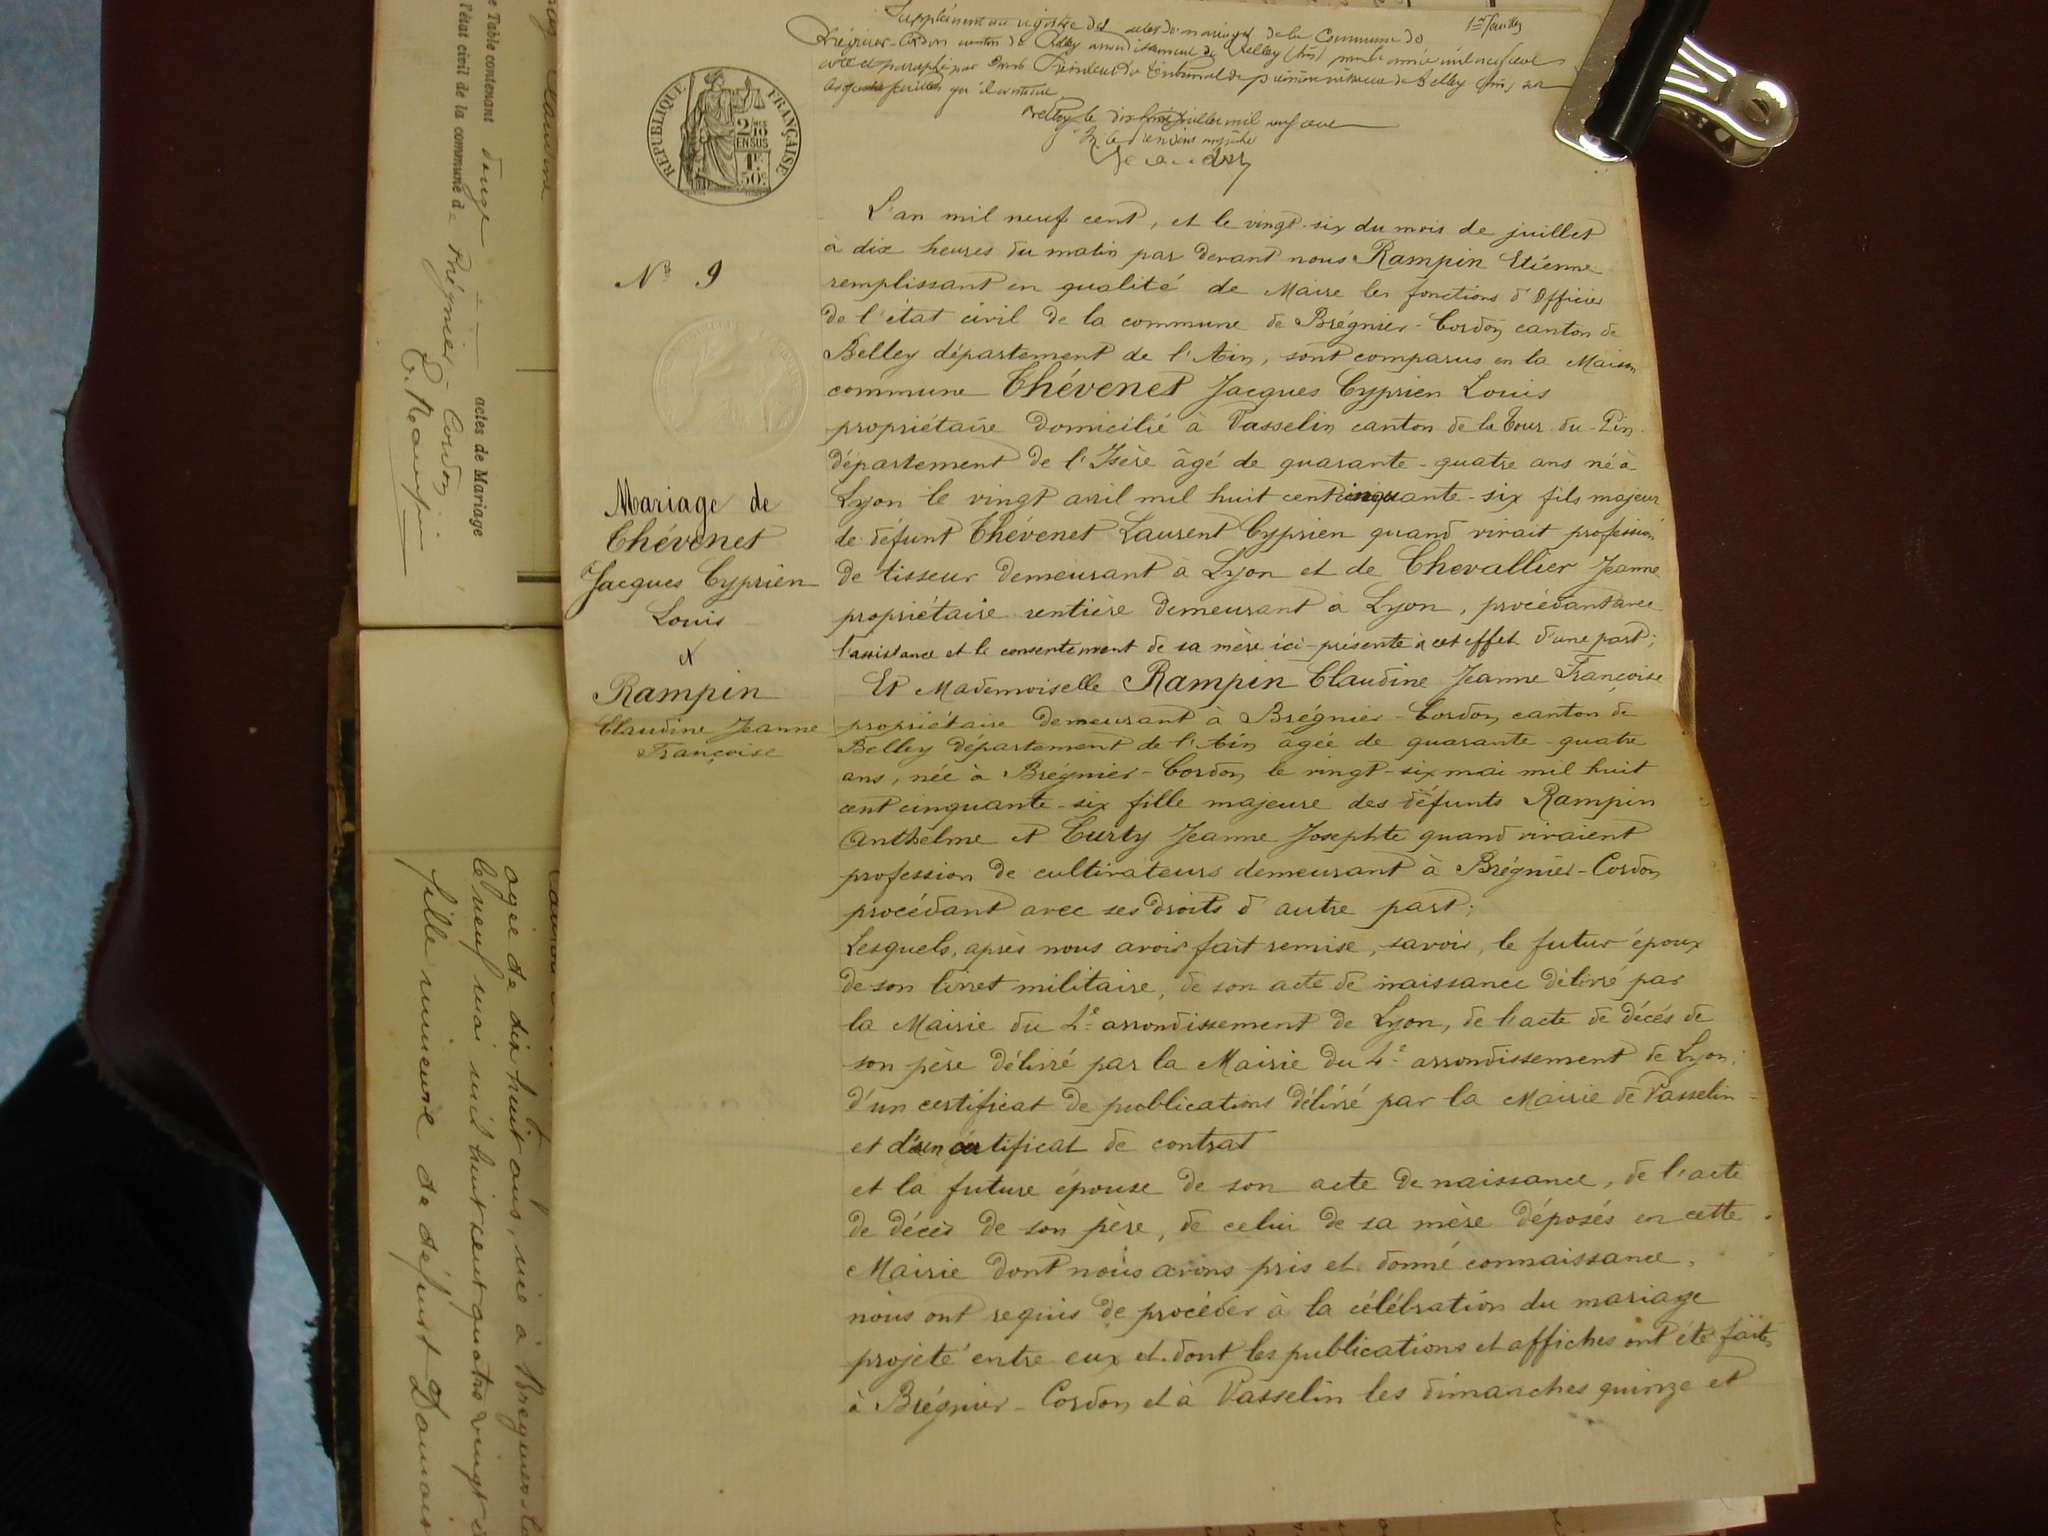 Supplément au registre des actes de mariages de la Commune de
1er feuillet
Brégnier-Cordon canton de Belley arrondissement de Belley (Ain) pour l'année mil neuf cent
coté et paraphé par Président du tribunal de première instance de Belley (Ain) sur
les feuillets qu'il contient
Belley le dix juillet mil neuf cent
RÉPUBLIQUE FRANÇAISE
2/10
EN SUS
1F.
50c.
L'an mil neuf cent, et le vingt-six du mois de juillet
à dix heures du matin par devant nous Rampin Etienne
N° 9
remplissant en qualité de Maire les fonctions d'Officier
de l'état civil de la commune de Brégnier-Cordon canton de
Belley département de l'Ain, sont comparus en la Maison
commune Thévenet Jacques Cyprien Louis
propriétaire domicilié à Vasselin canton de la Tour-du-Pin
département de l'Isère âgé de quarante-quatre ans né à
Lyon le vingt avril mil huit cent cinquante-six fils majeur
de défunt Thévenet Laurent Cyprien quand vivait profession
de tisseur demeurant à Lyon et de Chevallier Jeanne
propriétaire rentière demeurant à Lyon, procédant avec
l'assistance et le consentement de sa mère ici-présente à cet effet d'une part;
Et Mademoiselle Rampin Claudine Jeanne Françoise
propriétaire demeurant à Brégnier-Cordon canton de
Belley département de l'Ain âgée de quarante-quatre
ans, née à Brégnier-Cordon le vingt-six mai mil huit
cent cinquante-six fille majeure des défunts Rampin
Anthelme et Curty Jeanne Josephte quand vivaient
profession de cultivateurs demeurant à Brégnier-Cordon
procédant avec ses droits d'autre part;
Lesquels, après nous avoir fait remise, savoir, le futur époux
de son livret militaire, de son acte de naissance délivré par
la Mairie du 4e arrondissement de Lyon, de l'acte de décès de
son père délivré par la Mairie du 4e arrondissement de Lyon,
d'un certificat de publications délivré par la Mairie de Vasselin
et d'un certificat de contrat
et la future épouse de son acte de naissance, de l'acte
de décès de son père, de celui de sa mère déposés en cette
Mairie dont nous avons pris et donné connaissance,
nous ont requis de procéder à la célébration du mariage
projeté entre eux et dont les publications et affiches ont été faites
à Brégnier-Cordon et à Vasselin les dimanches quinze et
Mariage de
Thévenet
Jacques Cyprien
Louis
et
Rampin
Claudine Jeanne
Françoise
Table contenant douze actes de Mariage
l'état civil de la commune de Brégnier-Cordon
E. Rampin
Claudine
âgée de dix huit ans, née à Brégnier-
le neuf mai mil huit cent quatre vingt
fille mineure de défunt